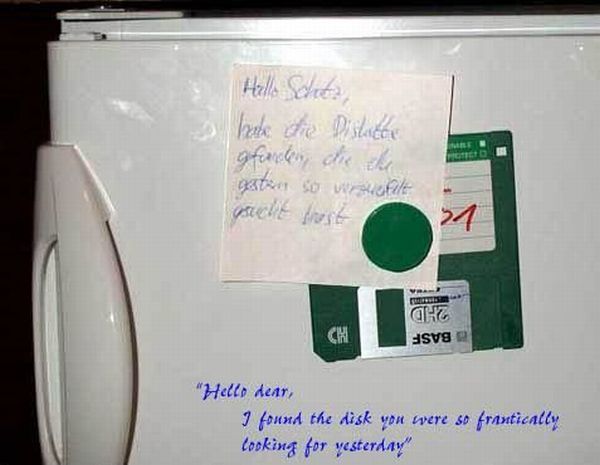 Hallo Schatz,
habe die Diskette
gefunden, die du
gestern so verzweifelt
gesucht hast
ENABLE
PROTECT
01
HD
2HD
BASF
"Hello dear,
I found the disk you were so frantically
looking for yesterday"